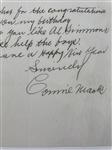 for the congratulations
on my birthday
you like Al Simmons
help the boys.
have a Happy New Year
Sincerely
Connie Mack